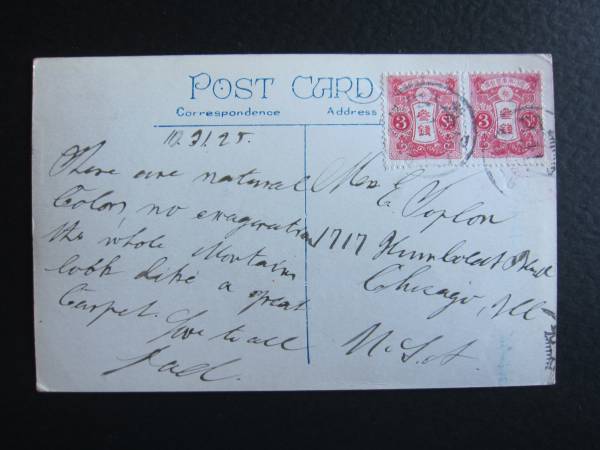 POST CARD
Correspondence
Address
10.31.25.
These are natural
Colors, no exageration
the whole Montains
look like a great
Carpet. Love to all
Jack.
Mrs E. Toplon
1717 Humboldt
Chicago, Ill
U.S.A.
3 参銭 3
3 参銭